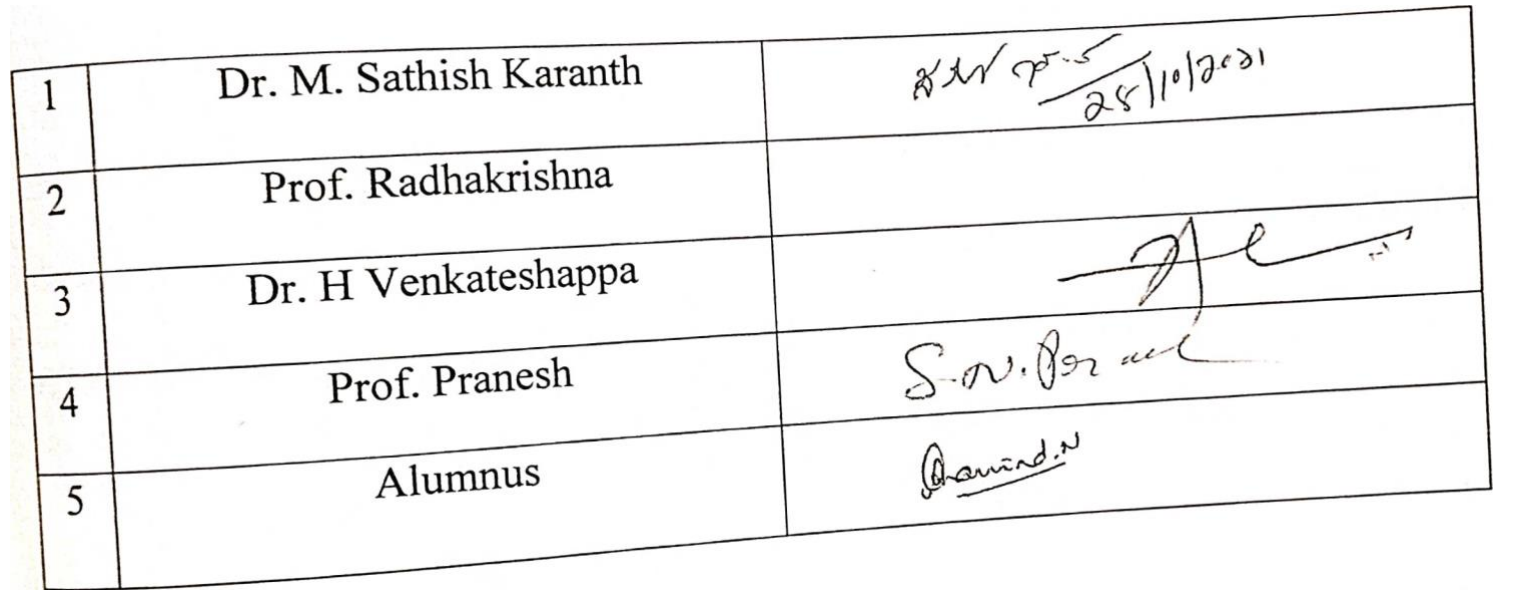 1 Dr. M. Sathish Karanth
28/10/2021
2 Prof. Radhakrishna
3 Dr. H Venkateshappa
4 Prof. Pranesh S.N.
5 Alumnus Aravind.N